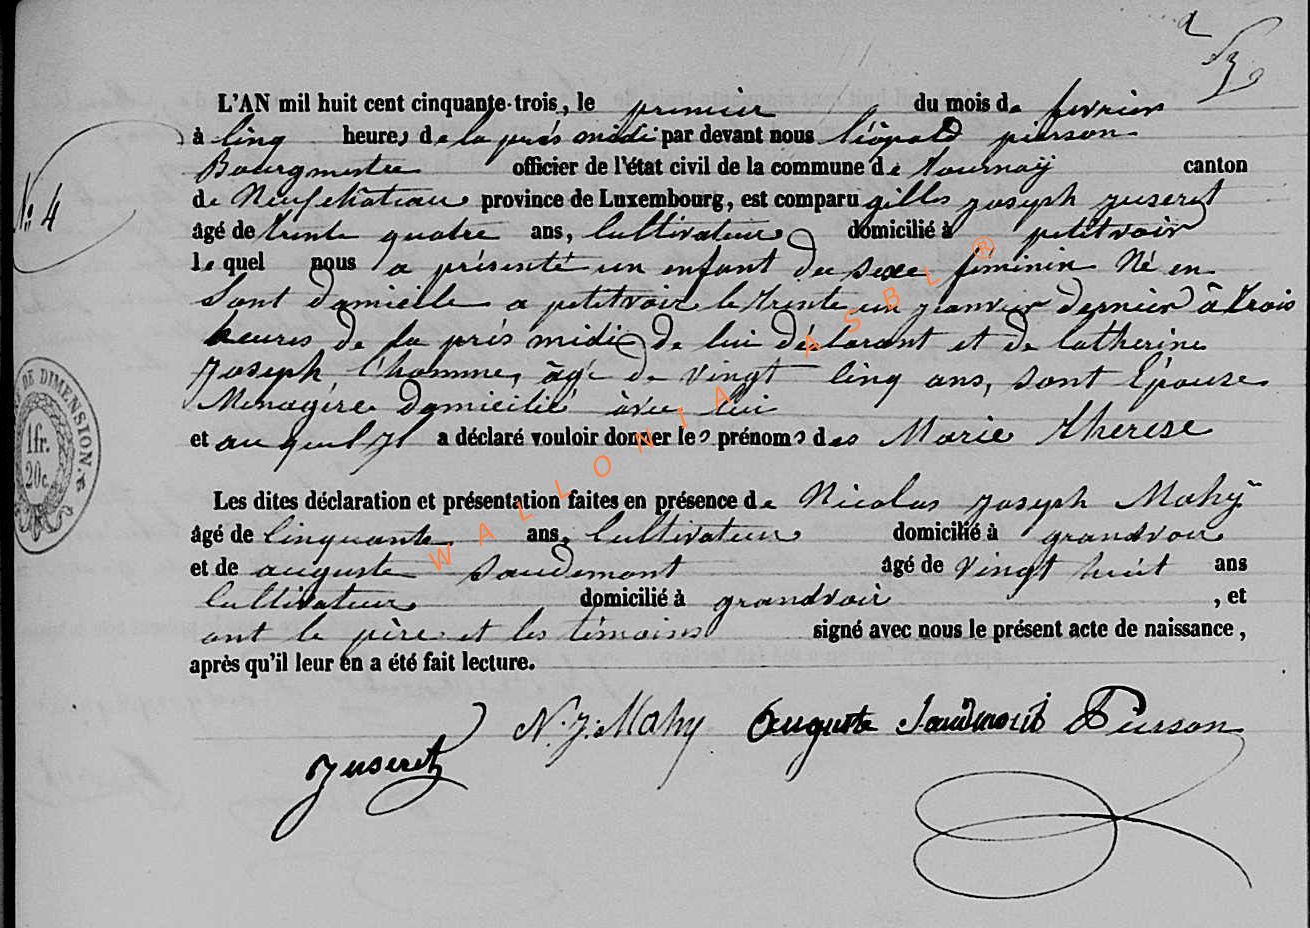 L'AN mil huit cent cinquante-trois, le premier du mois de fevrier
à Cinq heures de la prés midi par devant nous Léopold pierson
Bourgmestre officier de l'état civil de la commune de tournay canton
N.º 4
de Neufchateau province de Luxembourg, est comparu gilles joseph juseret
âgé de trente quatre ans, Cultivateur domicilié à petitvoir
le quel nous a présenté un enfant du sexe feminin Né en
Sont domicille a petitvoir le trente un janvier dernier à trois
heures de la prés midi de lui déclarant et de Catherine
Joseph Lhomme, âgé de vingt Cinq ans, sont Epouse
Menagère domicilié avec lui
et au quel Il a déclaré vouloir donner les prénoms des Marie therese
DE DIMENSION.
1fr.
20c.
Les dites déclaration et présentation faites en présence de Nicolas joseph Mahy
âgé de Cinquante ans, Cultivateur domicilié à grandvoir
et de auguste saudemont âgé de vingt huit ans
Cultivateur domicilié à grandvoir , et
ont le père et les témoins signé avec nous le présent acte de naissance,
après qu'il leur en a été fait lecture.
N. J. Mahy Auguste Saudmont Pierson
Juseret
WALLONIA ASBL ®